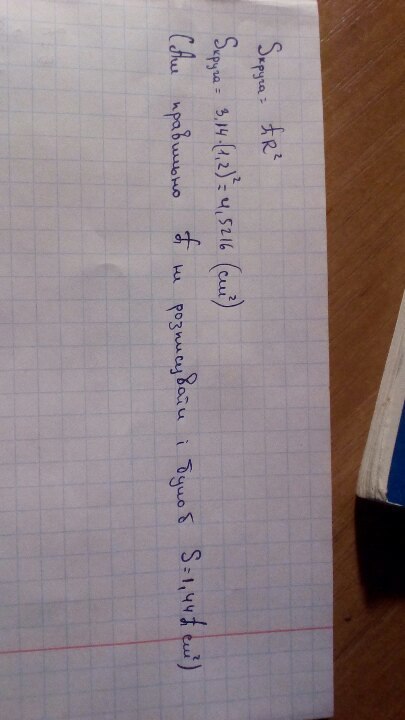 Sкруга = πR²
Sкруга = 3,14·(1,2)² = 4,5216 (см²)
(Але правильно π не розписувати і було б S = 1,44π см²)